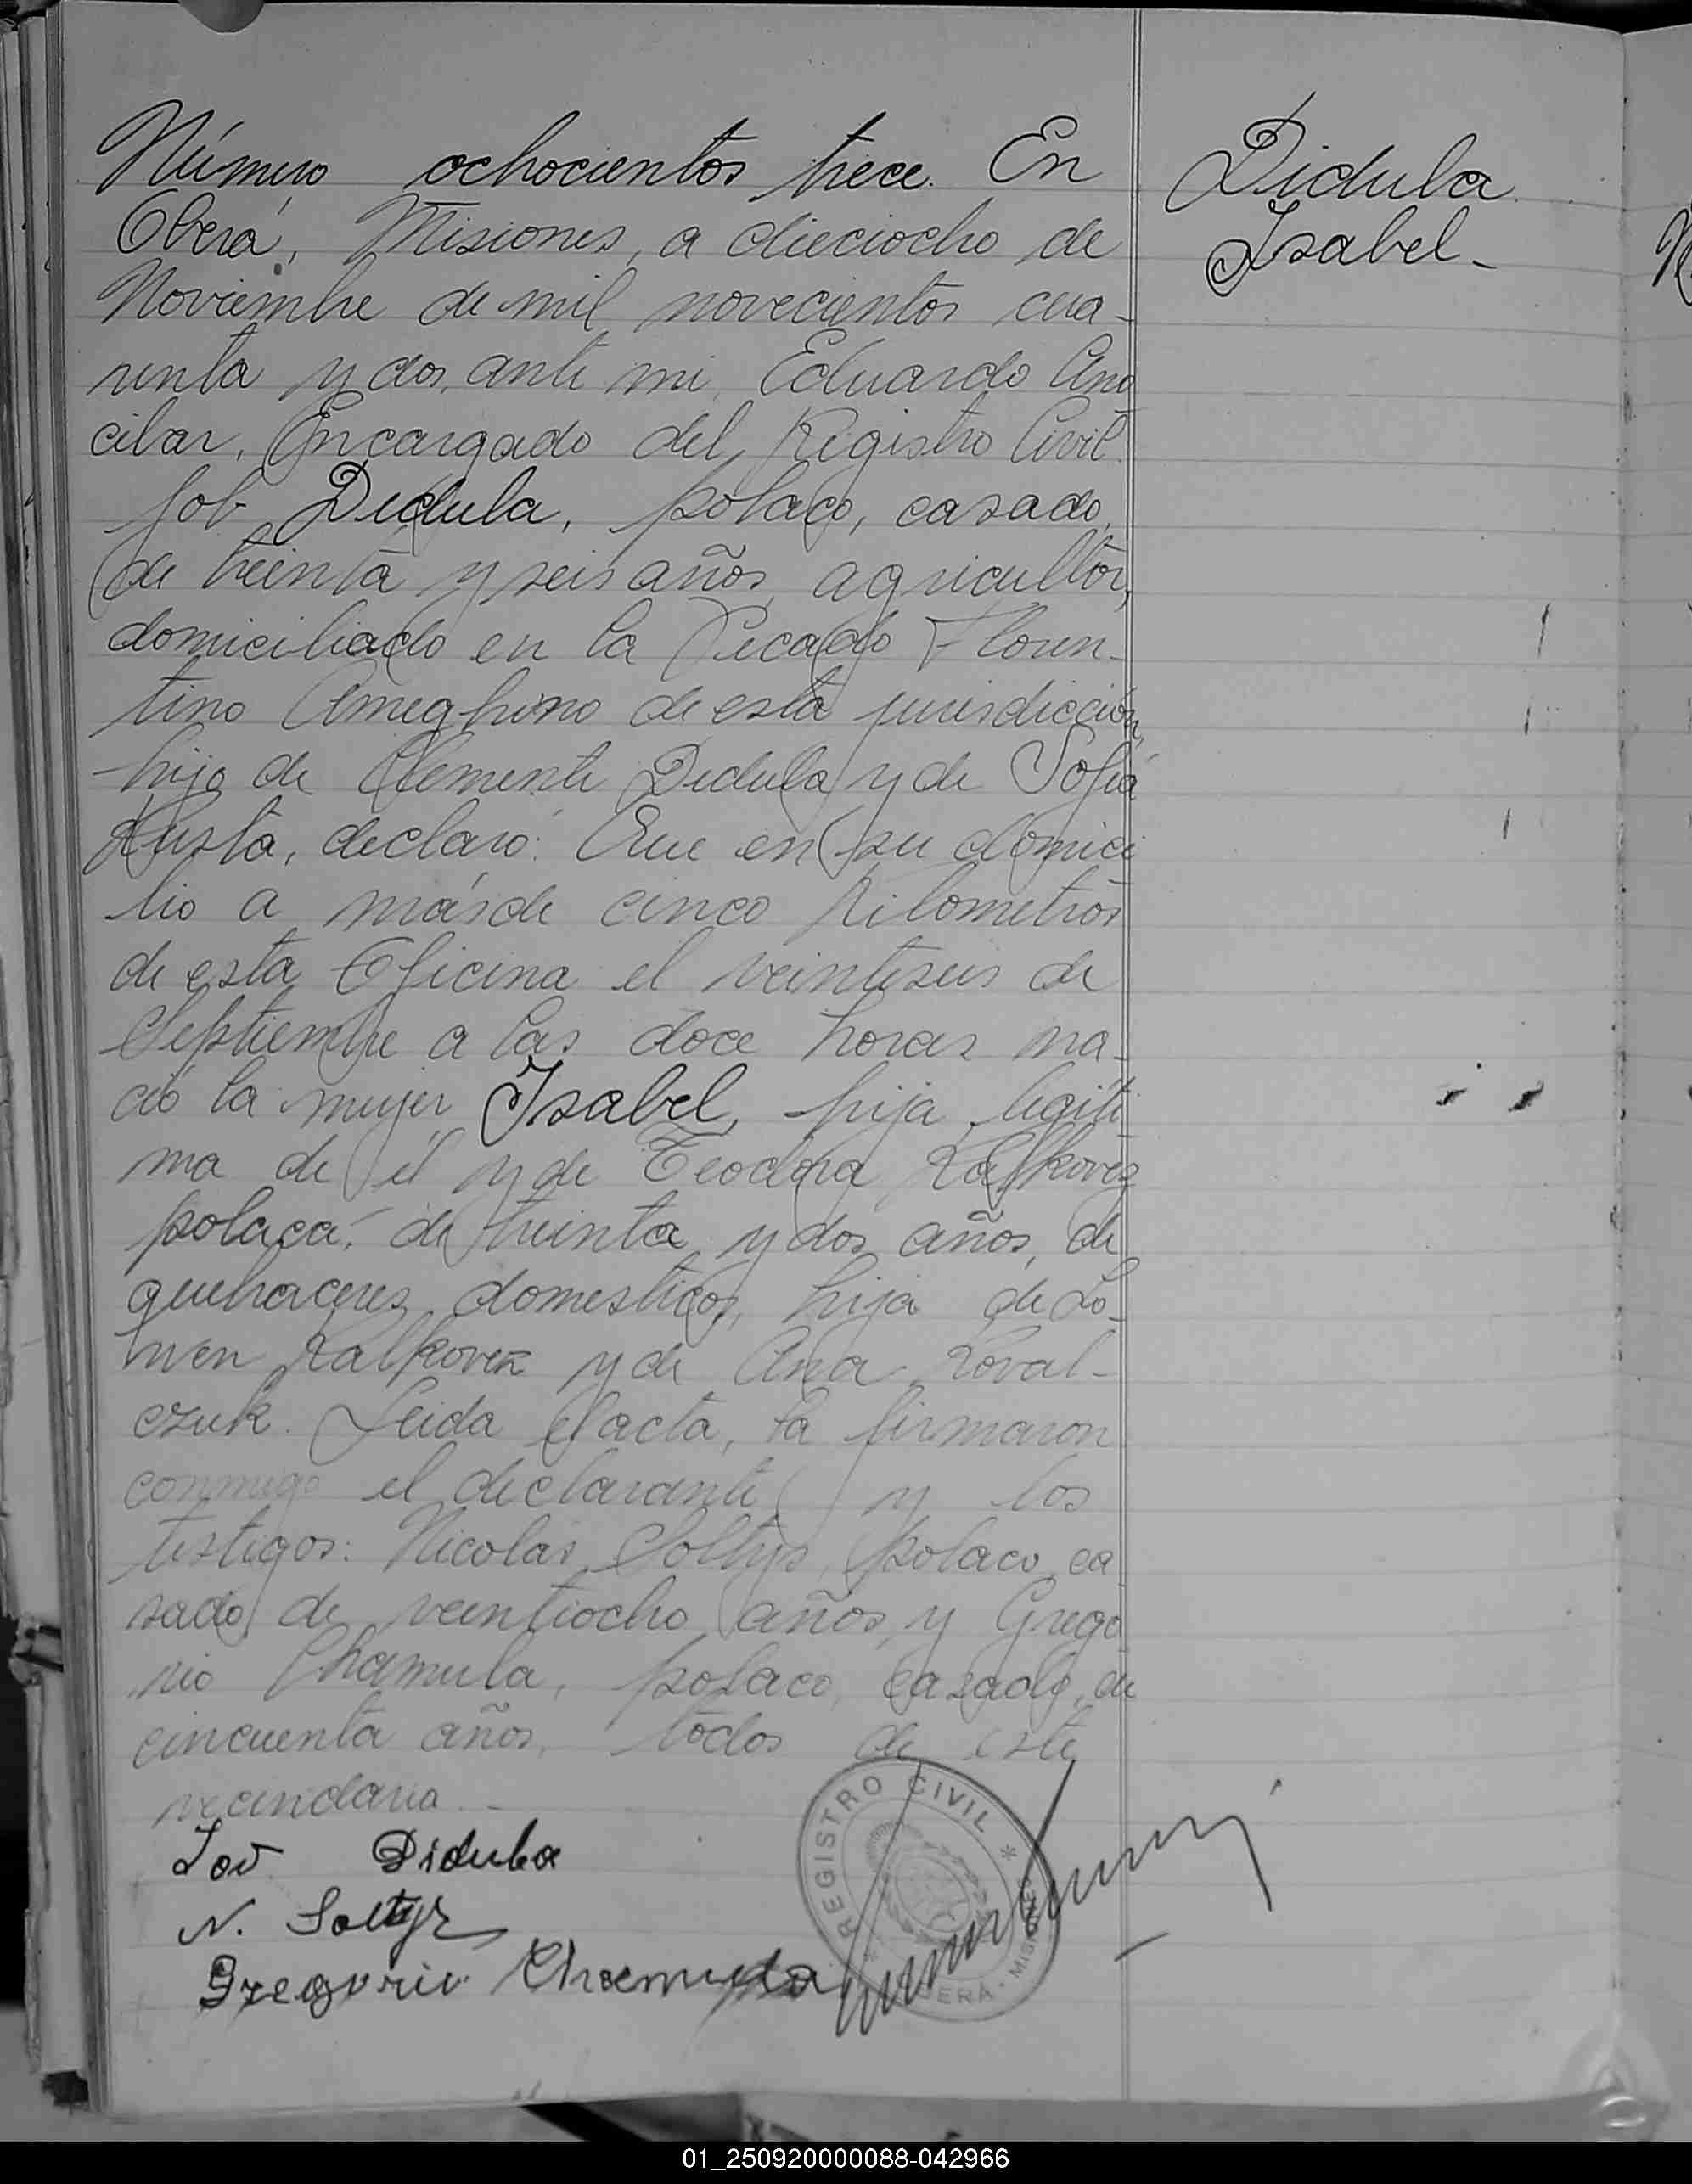 Número ochocientos trece. En
Oberá, Misiones, a dieciocho de
Noviembre de mil novecientos cua-
renta y dos, ante mi, Eduardo Ano
cibar, Encargado del Registro Civil.
Job Didula, polaco, casado,
de treinta y seis años, agricultor,
domiciliado en la Picada Floren-
tino Ameghino de esta jurisdicción,
hijo de Clemente Didula y de Sofía
declaró: Que en su domici
lio a más de cinco kilometros
de esta Oficina el veintiseis de
Septiembre a las doce horas na-
ció la mujer Isabel, hija legíti
ma de él y de Teodora Kalkovez
polaca, de treinta y dos años, de
quehaceres domesticos, hija de Lo-
Kalkovez y de Ana Koval-
czuk. Leida el acta, la firmaron
conmigo el declarante y los
testigos: Nicolas Soltys, polaco, ca
sado, de veintiocho años, y Grego
rio Chamula, polaco, casado, de
cincuenta años, todos de este
vecindario.-
Didula
Isabel-
Iov Didula
N. Soltys
Gregorio Chamula
REGISTRO CIVIL * OBERÁ - MISIONES *
01_250920000088-042966